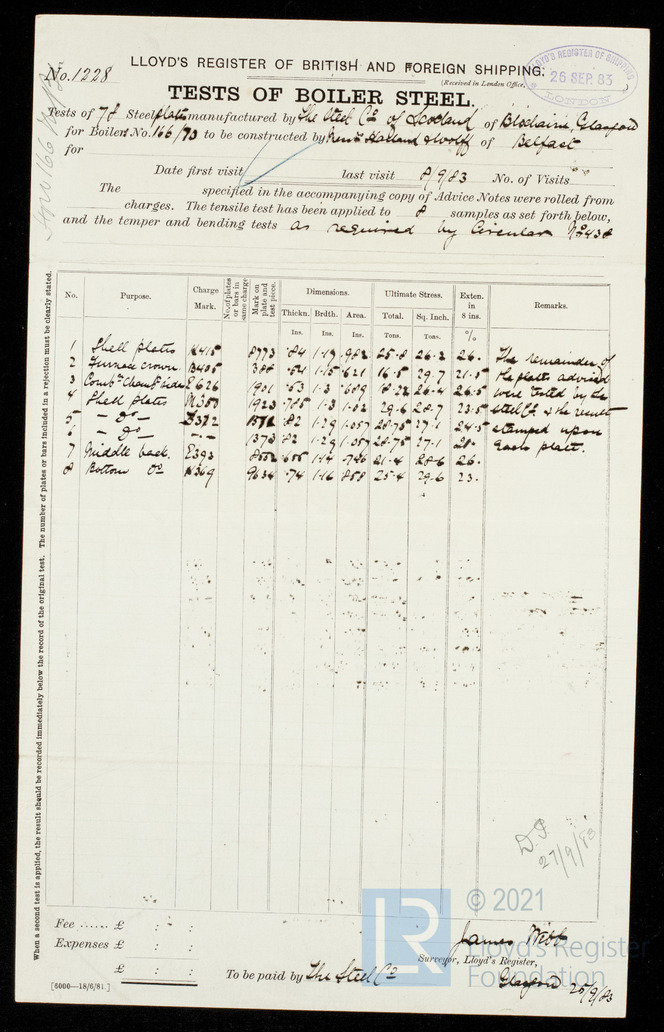 No. 1228
LLOYD'S REGISTER OF BRITISH AND FOREIGN SHIPPING.
(Received in London Office,
LLOYD'S REGISTER OF SHIPPING
26 SEP. 83
LONDON
TESTS OF BOILER STEEL.
Tests of 78 Steel plates manufactured by The Steel Co of Scotland of Blochairn, Glasgow
for Boilers No. 166/70 to be constructed by Harland & Wolff of Belfast
for
Date first visit last visit 8/9/83 No. of Visits
The specified in the accompanying copy of Advice Notes were rolled from
charges. The tensile test has been applied to 8 samples as set forth below,
and the temper and bending tests as required by Circular No 438
No. Purpose. Charge Mark. No. of plates or bars in same charge Mark on plate and test piece. Dimensions. Ultimate Stress. Exten. in 8 ins. Remarks.
Thickn. Brdth. Area. Total. Sq. Inch.
Ins. Ins. Ins. Tons. Tons. %
1 Shell plates 8773 .84 1.17 .982 25.8 26.2 26.
2 Furnace crown 388 .54 1.15 .621 29.7 21.5
3 Combn Chamr sides E626 1931 .53 1.3 .689 18.22 26.4 26.5
4 Shell plates 1923 .785 1.3 1.02 29.6 28.7 23.5
5 - Do - 1.29 1.057 28.75 27.1 24.5
6 - Do - 1373 .82 1.29 1.057 28.75 27.1 28.
7 Middle back. E393 .655 1.14 .746 21.4 28.6 26.
8 Bottom Do 9634 .74 1.16 .858 25.4 29.6 23.
The remainder of
the plates advised
were tested by the
steel Co & the result
stamped upon
each plate.
When a second test is applied, the result should be recorded immediately below the record of the original test. The number of plates or bars included in a rejection must be clearly stated.
27/9/83
Fee ...... £ : :
Expenses £ : :
£ : :
[6000—18/6/81.]
To be paid by The Steel Co
James Webb
Surveyor, Lloyd's Register,
Glasgow 25/9/83
LR
© 2021
Lloyd's Register
Foundation